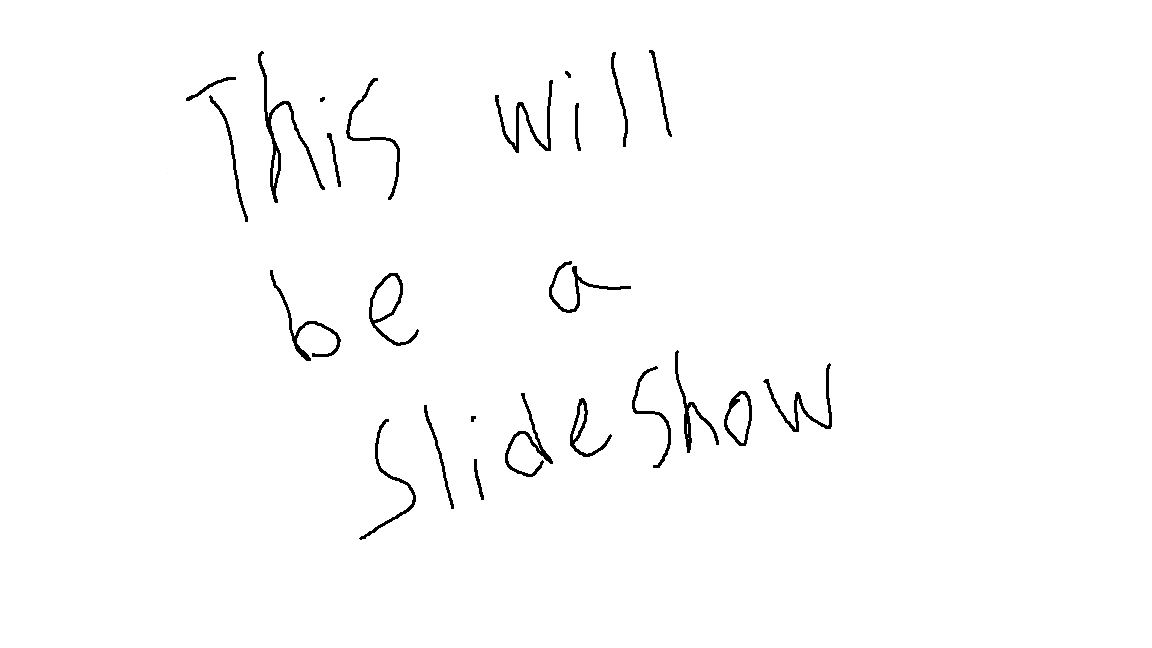 This will
be a
slideshow